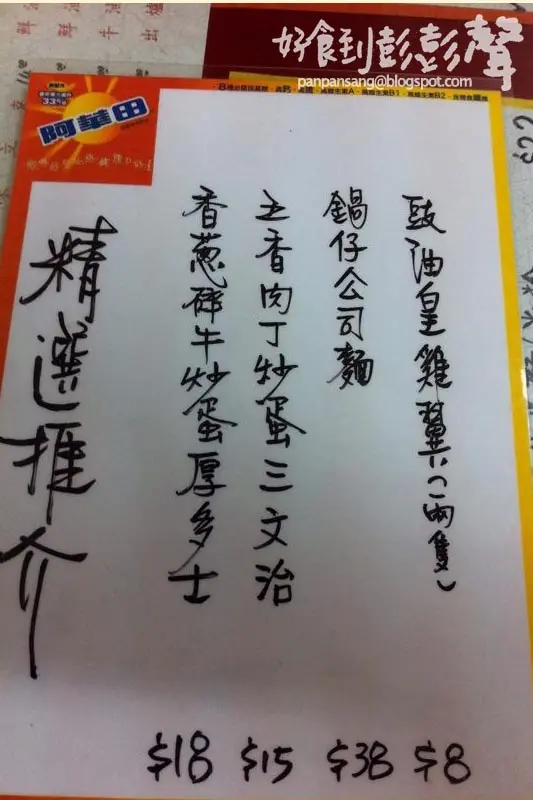 好食到彭彭聲
panpansang@blogspot.com
阿華田
33%
精選推介
豉油皇雞翼(兩隻) $8
鍋仔公司麵 $38
五香肉丁炒蛋三文治 $15
香葱碎牛炒蛋厚多士 $18
$22